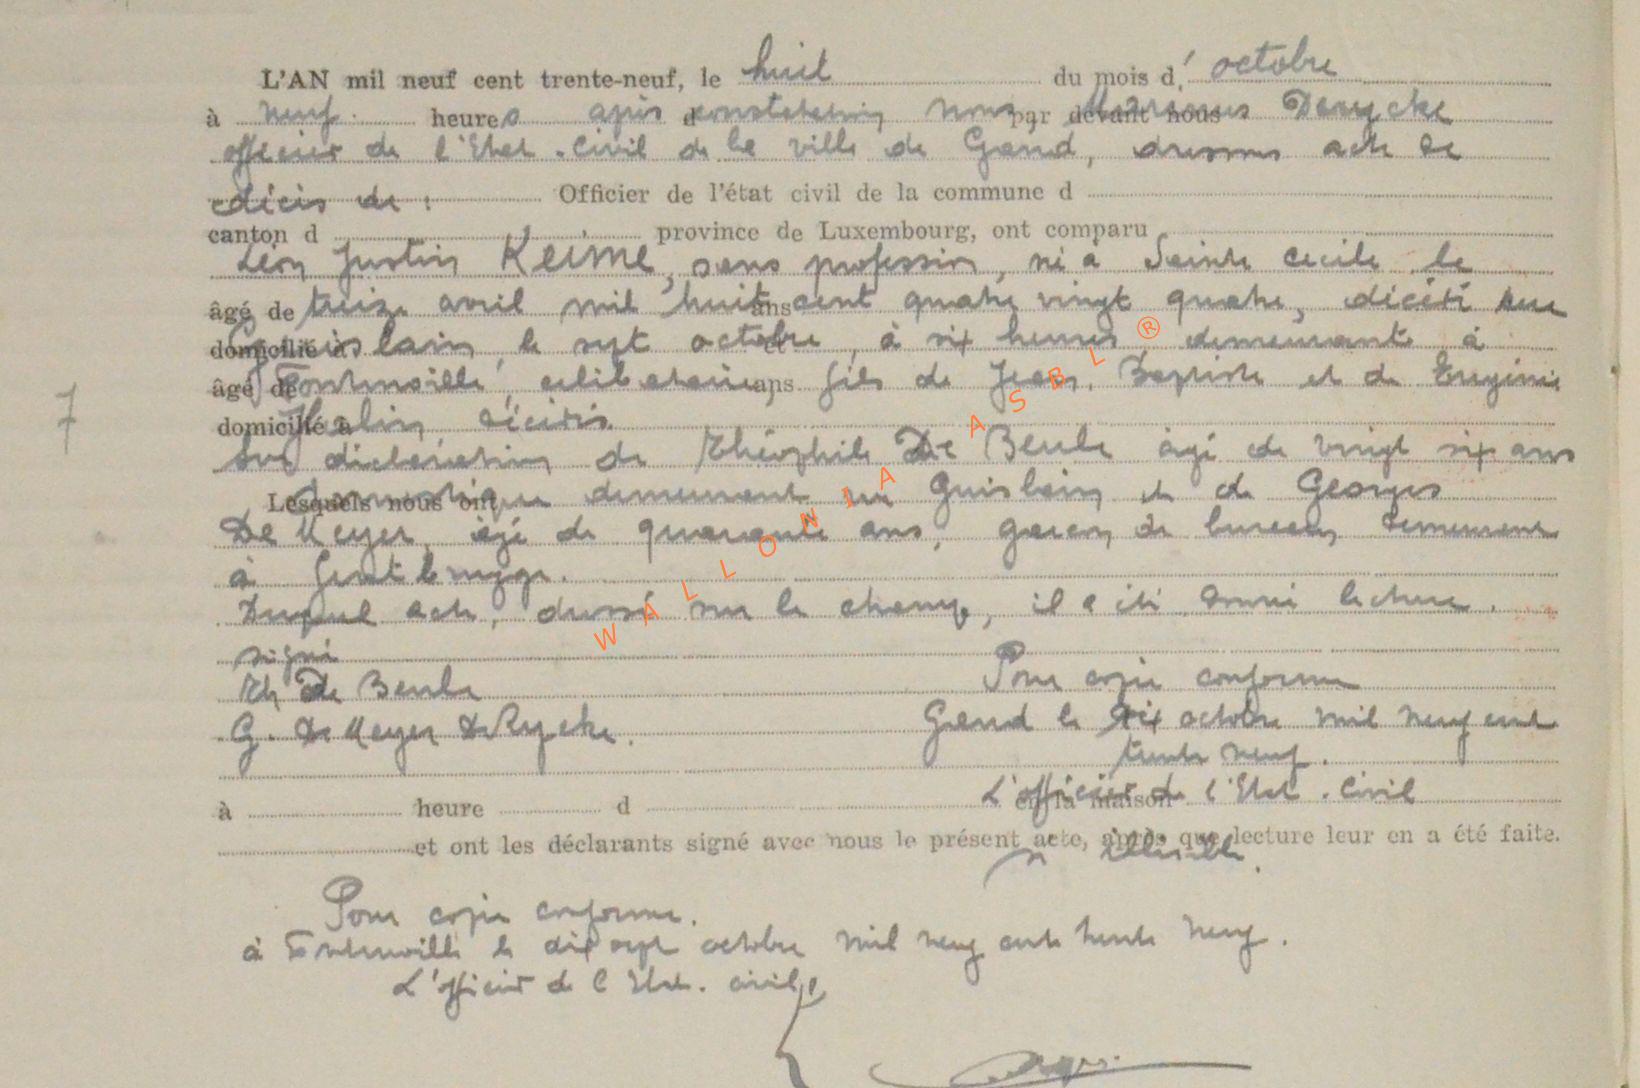 L'AN mil neuf cent trente-neuf, le huit du mois d' octobre
à neuf heures après constatation nous, par devant nous Derycke
officier de l'Etat-Civil de la ville de Gand, dressons acte de
décès de : Officier de l'état civil de la commune d
canton d province de Luxembourg, ont comparu
Léon Justin Keime, sans profession, né à Sainte Cécile le
âgé de treize avril mil huit ans cent quatre vingt quatre, décédé rue
domicilié à Guislain, le sept octobre, à six heures demeurant à
âgé de Fontenoille, célibataire, ans fils de Jean Baptiste et de Eugénie
domicilié à décédés.
Sur déclaration de Théophile De Beule âgé de vingt six ans
Lesquels nous ont domestique demeurant rue Guislain et de Georges
De Meyer, âgé de quarante ans, garçon de bureau, demeurant
à Gentbrugge.
Duquel acte, dressé sur le champ, il a été donné lecture.
signé
Th De Beule Pour copie conforme
G. De Meyer DeRycke. Gand le dix octobre mil neuf cent
trente neuf.
à heure d en la maison L'officier de l'Etat-Civil
et ont les déclarants signé avec nous le présent acte, après que lecture leur en a été faite.
illisible.
Pour copie conforme.
à Fontenoille le dix sept octobre mil neuf cent trente neuf.
L'officier de l'Etat-civil,
7
WALLONIA ASBL ®